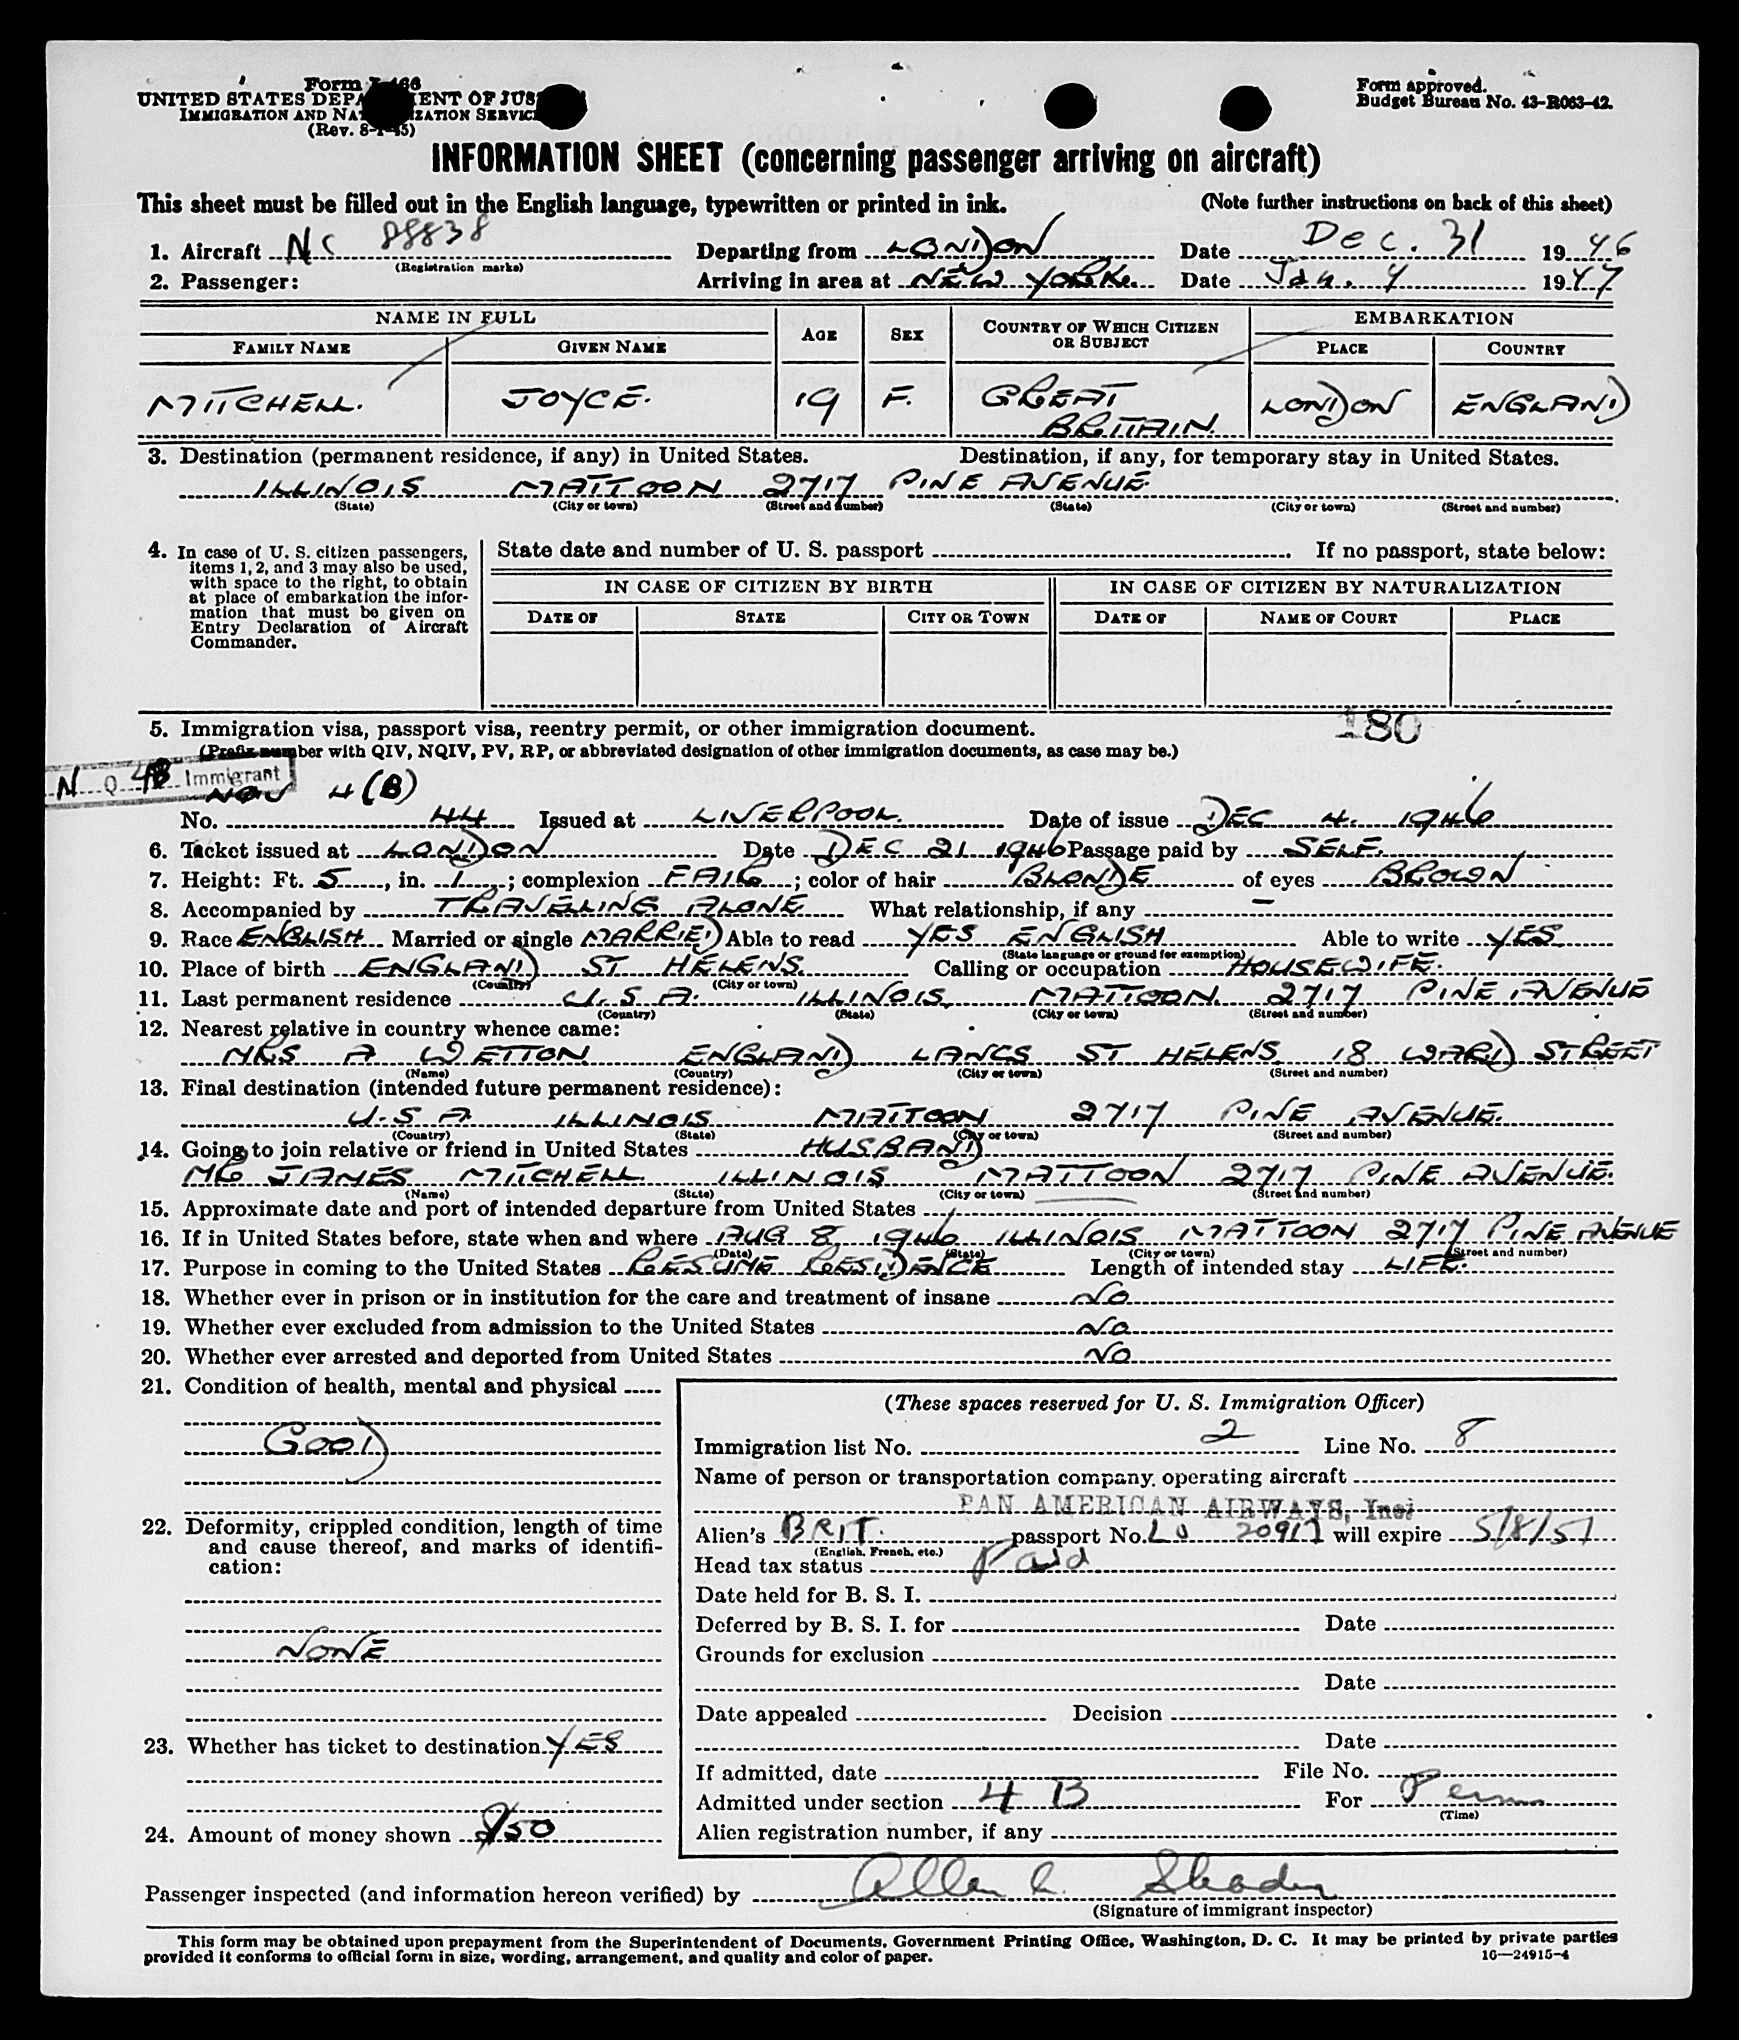 Form I-466
UNITED STATES DEPARTMENT OF JUSTICE
IMMIGRATION AND NATURALIZATION SERVICE
(Rev. 8-1-45)
Form approved.
Budget Bureau No. 43-R063-42.
INFORMATION SHEET (concerning passenger arriving on aircraft)
This sheet must be filled out in the English language, typewritten or printed in ink. (Note further instructions on back of this sheet)
1. Aircraft NC 88838 Departing from LONDON Date Dec. 31 1946
(Registration marks)
2. Passenger: Arriving in area at NEW YORK. Date Jan. 4 1947
NAME IN FULL AGE SEX COUNTRY OF WHICH CITIZEN OR SUBJECT EMBARKATION
FAMILY NAME GIVEN NAME PLACE COUNTRY
MITCHELL. JOYCE. 19 F. GREAT BRITAIN. LONDON ENGLAND
3. Destination (permanent residence, if any) in United States. Destination, if any, for temporary stay in United States.
ILLINOIS MATTOON 2717 PINE AVENUE.
(State) (City or town) (Street and number) (State) (City or town) (Street and number)
4. In case of U. S. citizen passengers, items 1, 2, and 3 may also be used, with space to the right, to obtain at place of embarkation the information that must be given on Entry Declaration of Aircraft Commander.
State date and number of U. S. passport If no passport, state below:
IN CASE OF CITIZEN BY BIRTH IN CASE OF CITIZEN BY NATURALIZATION
DATE OF STATE CITY OR TOWN DATE OF NAME OF COURT PLACE
180
5. Immigration visa, passport visa, reentry permit, or other immigration document.
(Prefix number with QIV, NQIV, PV, RP, or abbreviated designation of other immigration documents, as case may be.)
N Q 4B Immigrant
NQIV 4(B)
No. 44 Issued at LIVERPOOL. Date of issue DEC 4. 1946
6. Ticket issued at LONDON Date DEC 21 1946 Passage paid by SELF.
7. Height: Ft. 5, in. 1; complexion FAIR; color of hair BLONDE of eyes BROWN
8. Accompanied by TRAVELLING ALONE What relationship, if any –
9. Race ENGLISH Married or single MARRIED Able to read YES ENGLISH Able to write YES
(State language or ground for exemption)
10. Place of birth ENGLAND ST HELENS. Calling or occupation HOUSEWIFE.
(Country) (City or town)
11. Last permanent residence U.S A. ILLINOIS, MATTOON. 2717 PINE AVENUE
(Country) (State) (City or town) (Street and number)
12. Nearest relative in country whence came:
MRS A WETTON ENGLAND LANCS ST HELENS 18 WARD STREET
(Name) (Country) (City or town) (Street and number)
13. Final destination (intended future permanent residence):
U.S A. ILLINOIS MATTOON 2717 PINE AVENUE.
(Country) (State) (City or town) (Street and number)
14. Going to join relative or friend in United States HUSBAND
MR JAMES MITCHELL ILLINOIS MATTOON 2717 PINE AVENUE.
(Name) (State) (City or town) (Street and number)
15. Approximate date and port of intended departure from United States
16. If in United States before, state when and where AUG 8, 1946 ILLINOIS MATTOON 2717 PINE AVENUE
(Date) (State) (City or town) (Street and number)
17. Purpose in coming to the United States RESUME RESIDENCE Length of intended stay LIFE.
18. Whether ever in prison or in institution for the care and treatment of insane NO
19. Whether ever excluded from admission to the United States NO
20. Whether ever arrested and deported from United States NO
21. Condition of health, mental and physical
GOOD
22. Deformity, crippled condition, length of time and cause thereof, and marks of identification:
NONE
23. Whether has ticket to destination YES
24. Amount of money shown $50
(These spaces reserved for U. S. Immigration Officer)
Immigration list No. 2 Line No. 8
Name of person or transportation company operating aircraft
PAN AMERICAN AIRWAYS, Inc.
Alien's BRIT. passport No. LO 20917 will expire 5/8/51
(English, French, etc.)
Head tax status Paid
Date held for B. S. I.
Deferred by B. S. I. for Date
Grounds for exclusion
Date
Date appealed Decision
Date
If admitted, date File No.
Admitted under section 4 B For Perm
(Time)
Alien registration number, if any
Passenger inspected (and information hereon verified) by Allen
(Signature of immigrant inspector)
This form may be obtained upon prepayment from the Superintendent of Documents, Government Printing Office, Washington, D. C. It may be printed by private parties
provided it conforms to official form in size, wording, arrangement, and quality and color of paper. 16—24915-4